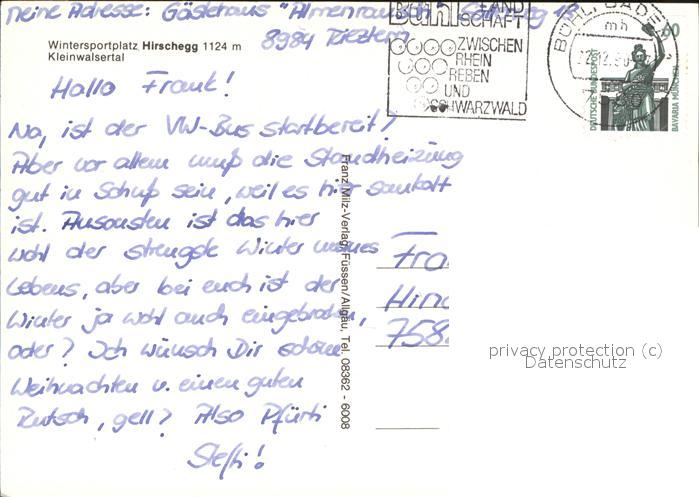 Meine Adresse: Gästehaus "Almenrausch"
8984 Riezlern
Wintersportplatz Hirschegg 1124 m
Kleinwalsertal
Hallo Frank!
Na, ist der VW-Bus startbereit?
Aber vor allem muß die Standheizung
gut in Schuß sein, weil es hier saukalt
ist. Ansonsten ist das hier
wohl der strengste Winter meines
Lebens, aber bei euch ist der
Winter ja wohl auch eingebrochen,
oder? Ich wünsch Dir schöne
Weihnachten u. einen guten
Rutsch, gell? Also Pfürti
Steffi!
Franz Milz-Verlag, Füssen/Allgäu, Tel. 08362 - 6008
Bühl
LAND
SCHAFT
ZWISCHEN
RHEIN
REBEN
UND
SCHWARZWALD
BÜHL, BADEN
mh
60
DEUTSCHE BUNDESPOST
BAVARIA MÜNCHEN
Fra
Hin
758
privacy protection (c)
Datenschutz